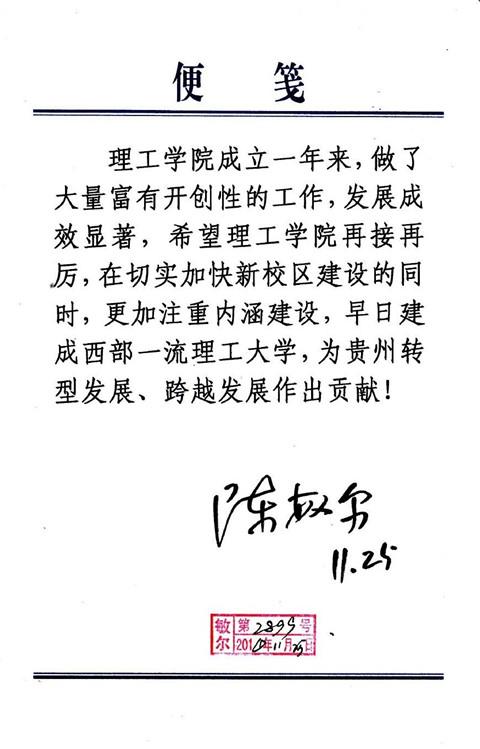 便 笺
理工学院成立一年来,做了
大量富有开创性的工作,发展成
效显著,希望理工学院再接再
厉,在切实加快新校区建设的同
时,更加注重内涵建设,早日建
成西部一流理工大学,为贵州转
型发展、跨越发展作出贡献!
陈敏尔
11.25
敏尔
第2899号
2014年11月25日